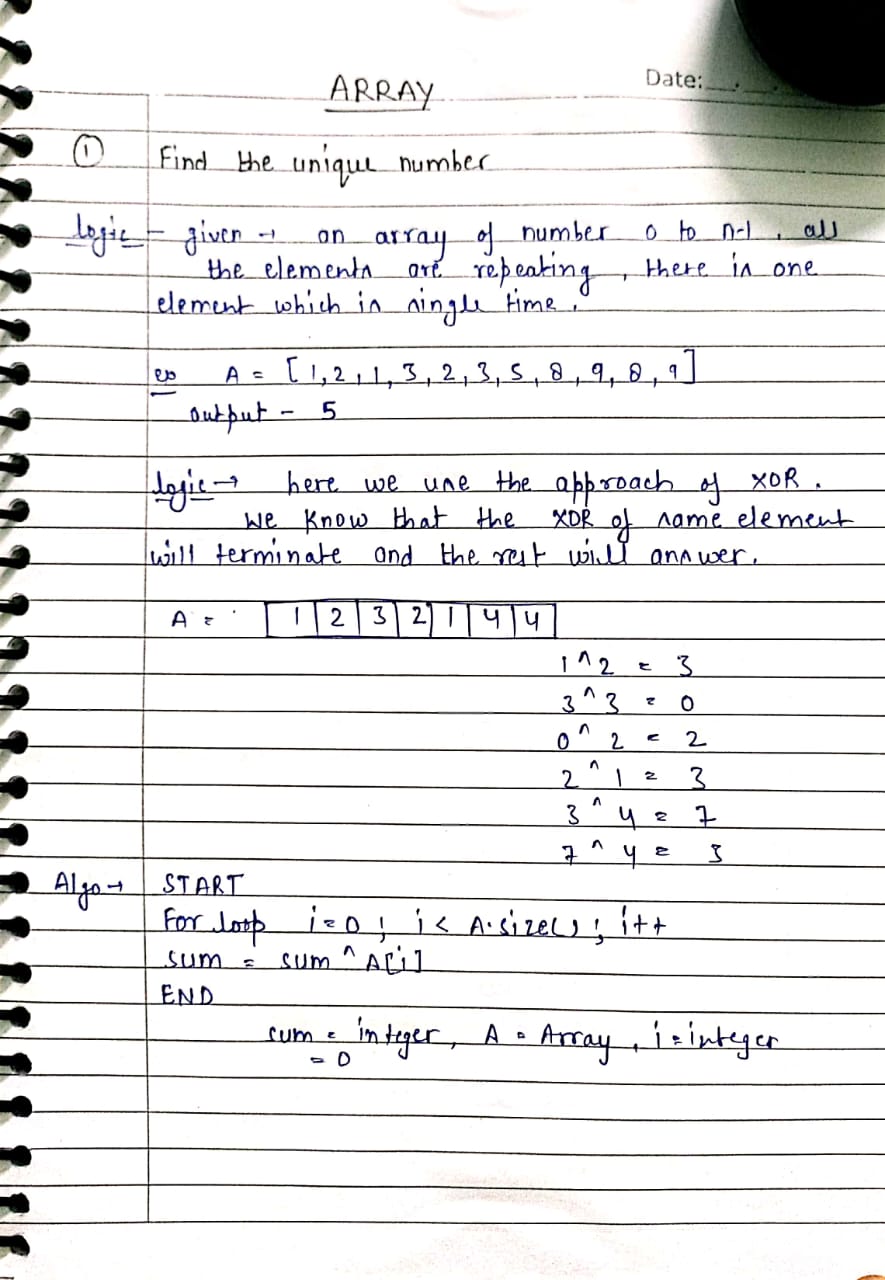 ARRAY
Date:
① Find the unique number
logic - given → an array of number 0 to n-1, all
the elements are repeating, there is one
element which is single time.
ex A = [1,2,1,3,2,3,5,8,9,8,9]
output - 5
logic → here we use the approach of XOR.
We know that the XOR of same element
will terminate and the rest will answer.
A = 1 2 3 2 1 4 4
1^2 = 3
3^3 = 0
0^2 = 2
2^1 = 3
3^4 = 7
7^4 = 3
Algo → START
For loop i=0; i< A.size(); i++
sum = sum ^ A[i]
END
sum = integer, A = Array, i = integer
= 0